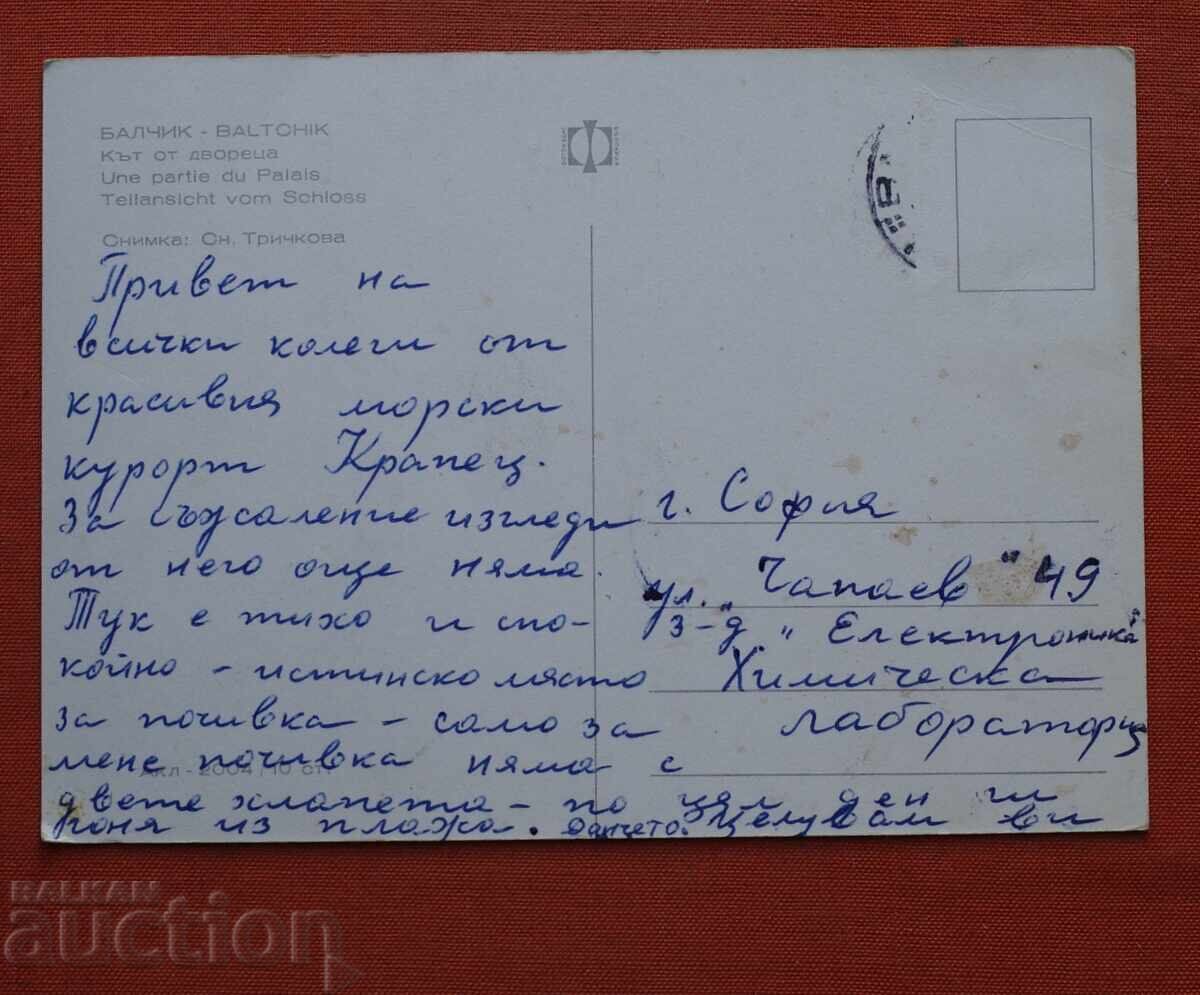 БАЛЧИК - BALTCHIK
Кът от двореца
Une partie du Palais
Teilansicht vom Schloss
Снимка: Сн. Тричкова
Привет на
всички колеги от
красивия морски
курорт Крапец.
За съжаление изгледи
от него още няма.
Тук е тихо и спо-
койно - истинско място
за почивка - само за
мене почивка няма с
двете хлапета - по цял ден ги
гоня из плажа. Целувам ви
Данчето.
Акл - 2004 / 10 ст.
г. София
ул. "Чапаев" 49
з-д "Електроника"
Химическа
лаборатория
BALKAN
auction